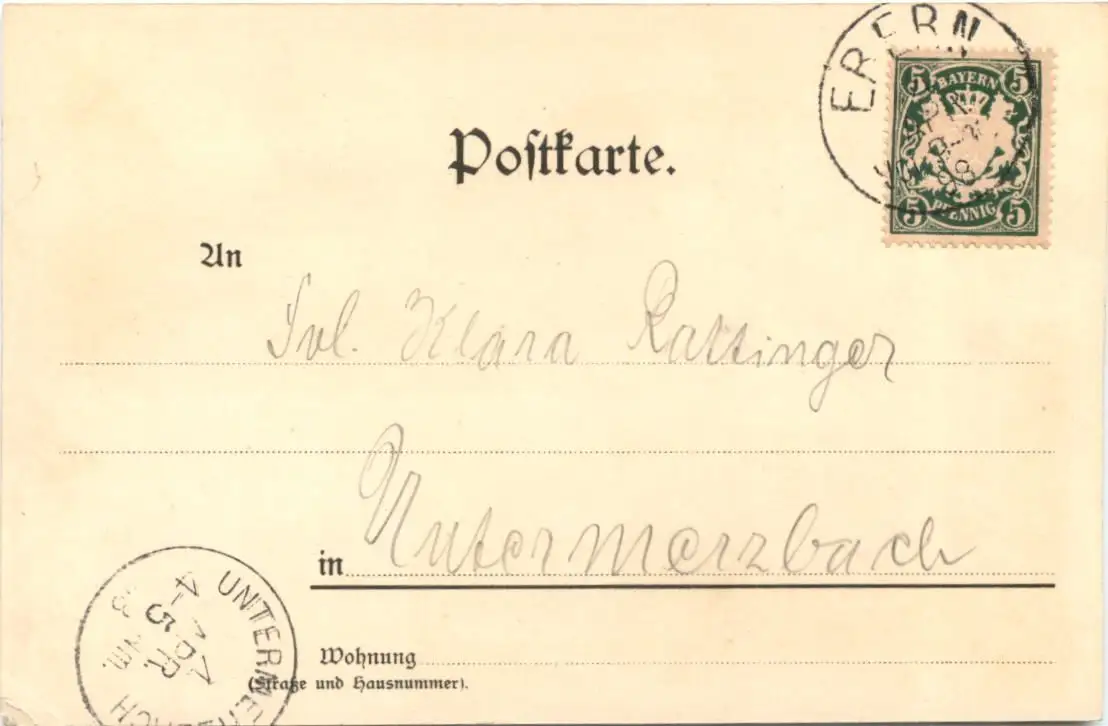 EBERN
5 BAYERN 5
5 PFENNIG 5
Postkarte.
An
Frl. Klara Rattinger
in Untermerzbach
UNTERMERZBACH
4-5
4 APR
Nm.
Wohnung
(Straße und Hausnummer).